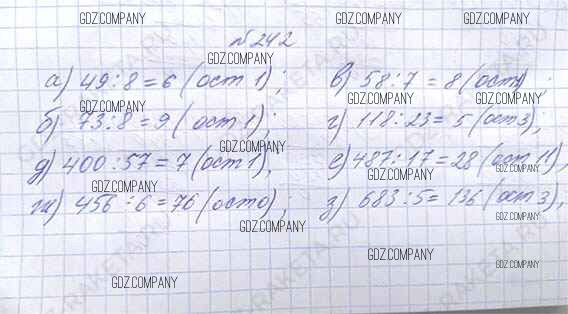 GDZ.COMPANY GDZ.COMPANY GDZ.COMPANY
№242
GDZ.COMPANY
а) 49:8=6 (ост 1); в) 58:7=8 (ост 2);
GDZ.COMPANY GDZ.COMPANY GDZ.COMPANY
б) 73:8=9 (ост 1); г) 118:23=5 (ост 3);
GDZ.COMPANY
д) 400:57=7 (ост 1); е) 487:17=28 (ост 11),
GDZ.COMPANY GDZ.COMPANY GDZ.COMPANY
ж) 456:6=76 (ост 0); з) 683:5=136 (ост 3),
GDZ.COMPANY GDZ.COMPANY
GDZ.COMPANY GDZ.COMPANY
GDZ.COMPANY